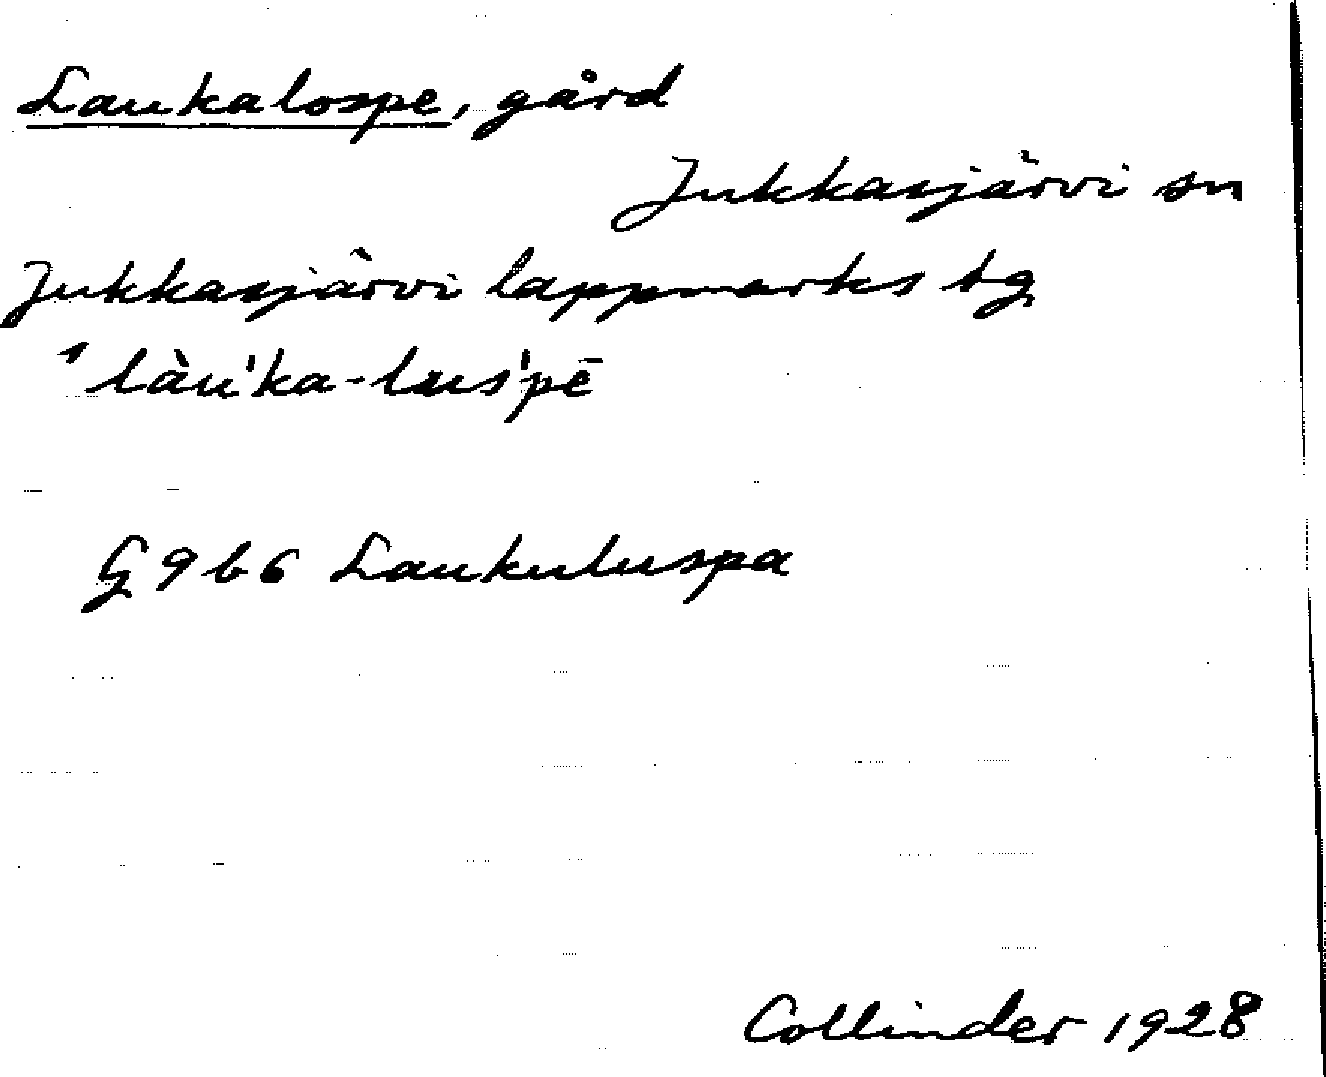 Laukalospe, gård
Jukkasjärvi sn
Jukkasjärvi lappmarks tg
ˈlàu'ka-lus'pē
G 9 b 6 Laukuluspa
Collinder 1928